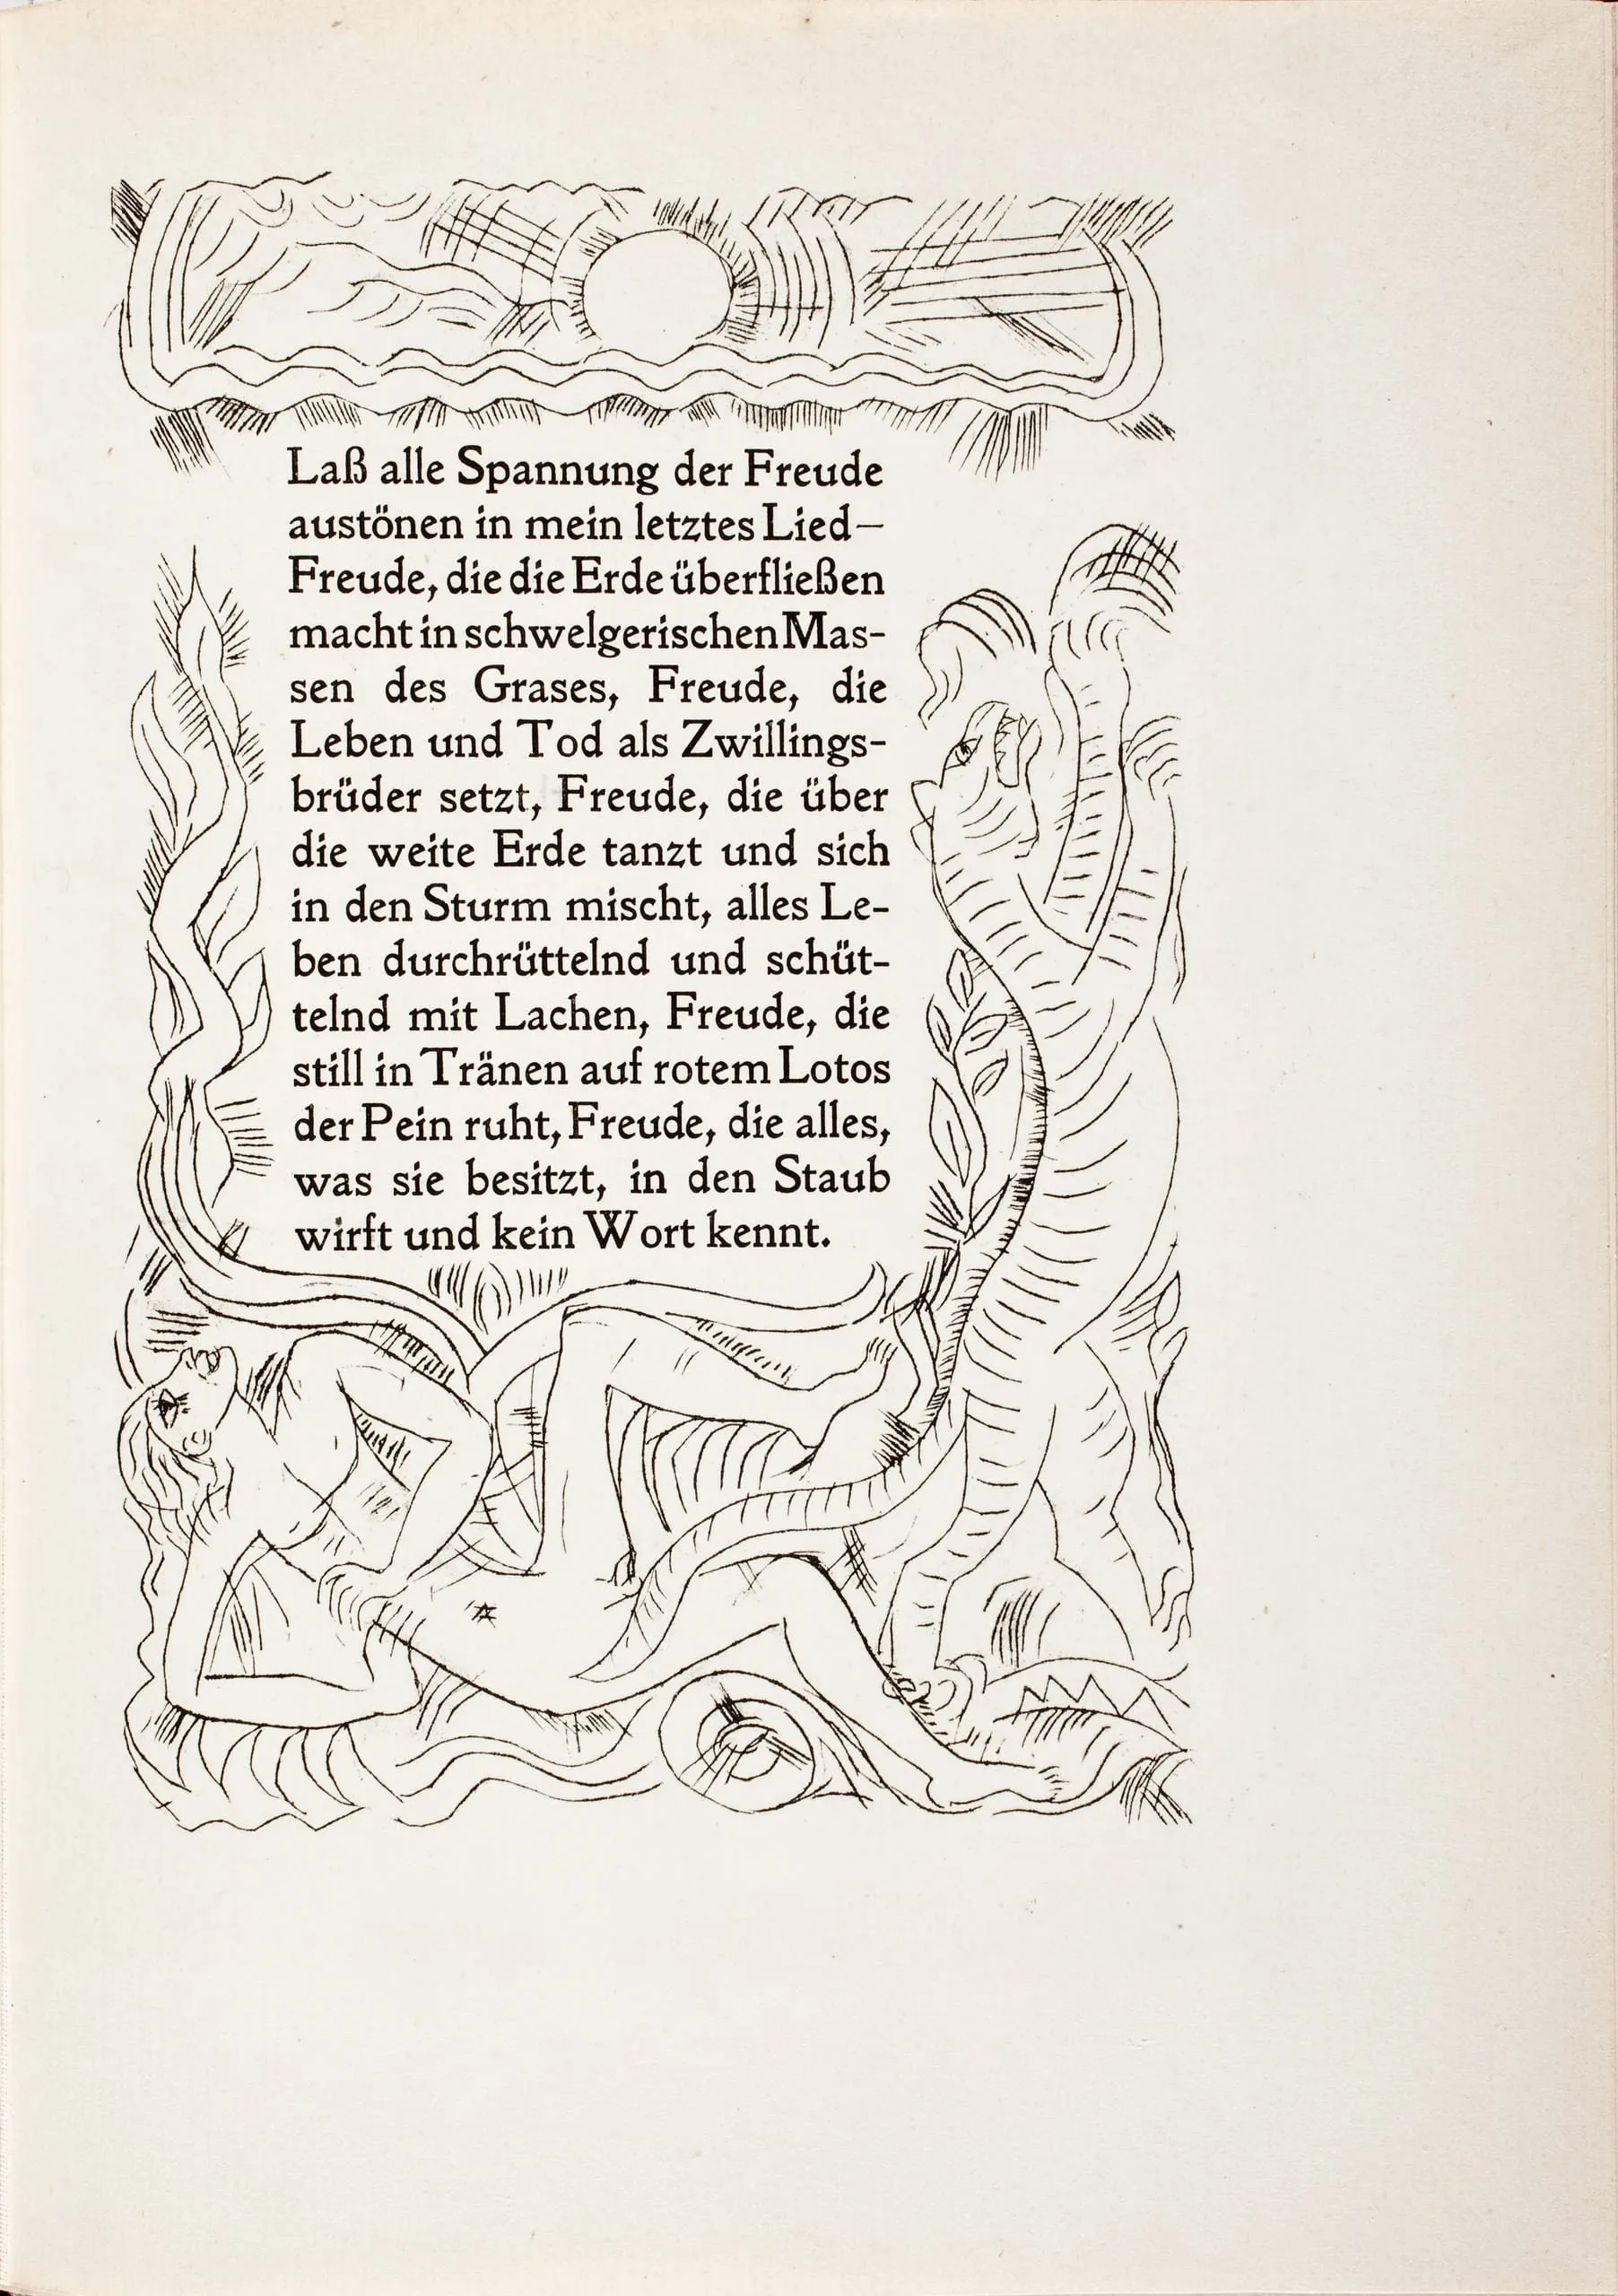 Laß alle Spannung der Freude
austönen in mein letztes Lied—
Freude, die die Erde überfließen
macht in schwelgerischen Mas-
sen des Grases, Freude, die
Leben und Tod als Zwillings-
brüder setzt, Freude, die über
die weite Erde tanzt und sich
in den Sturm mischt, alles Le-
ben durchrüttelnd und schüt-
telnd mit Lachen, Freude, die
still in Tränen auf rotem Lotos
der Pein ruht, Freude, die alles,
was sie besitzt, in den Staub
wirft und kein Wort kennt.